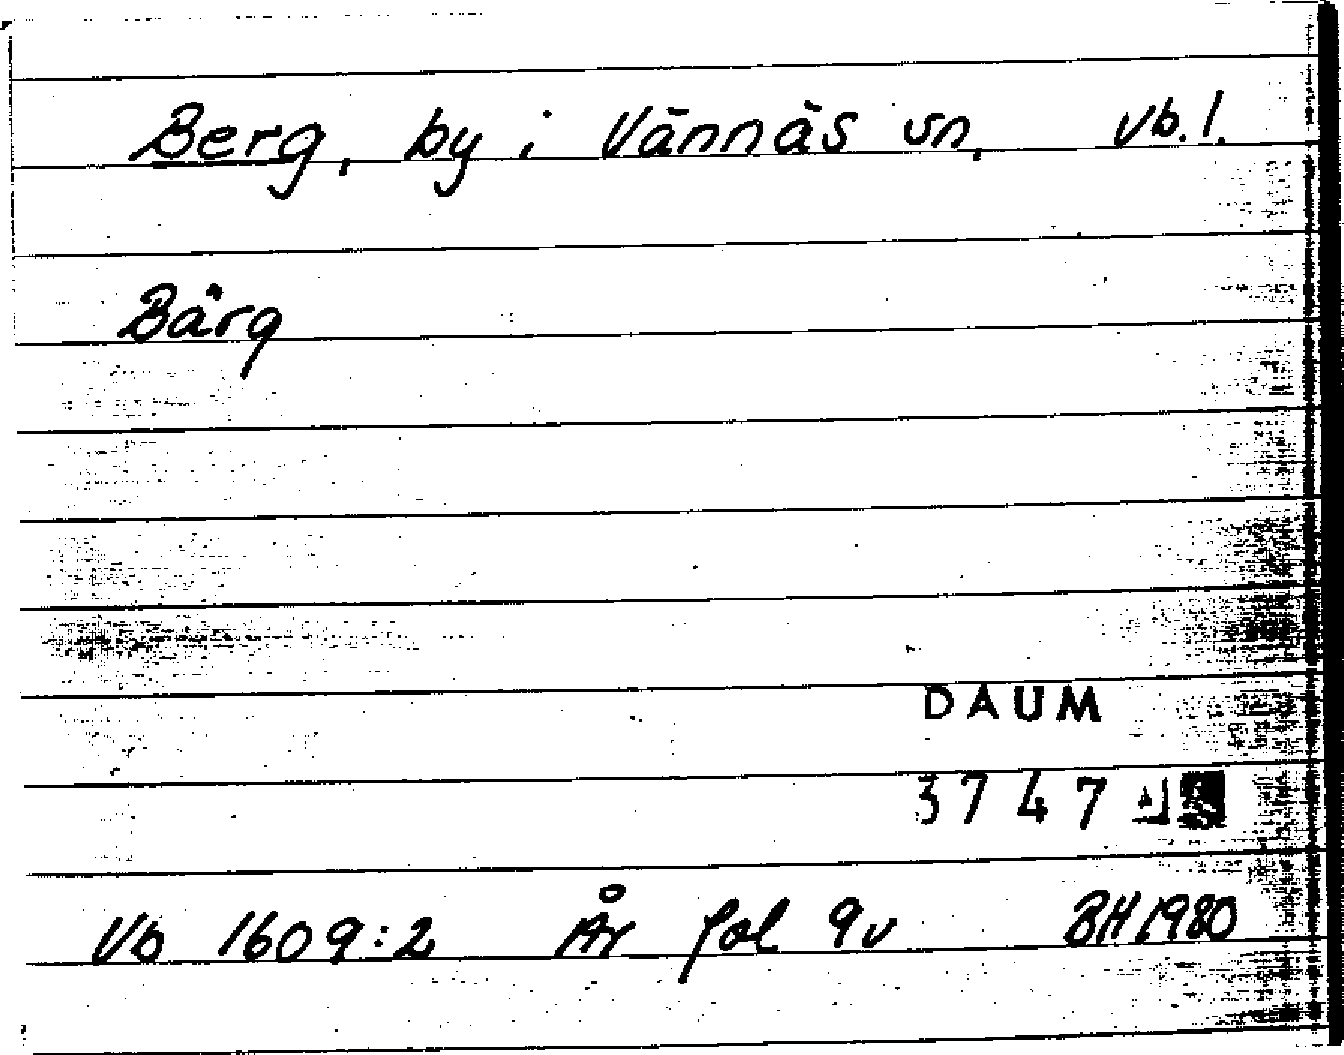 Berg, by i Vännäs sn, Vb. l.
Bärg
DAUM
3747
Vb 1609:2 År fol 9v BH 1980